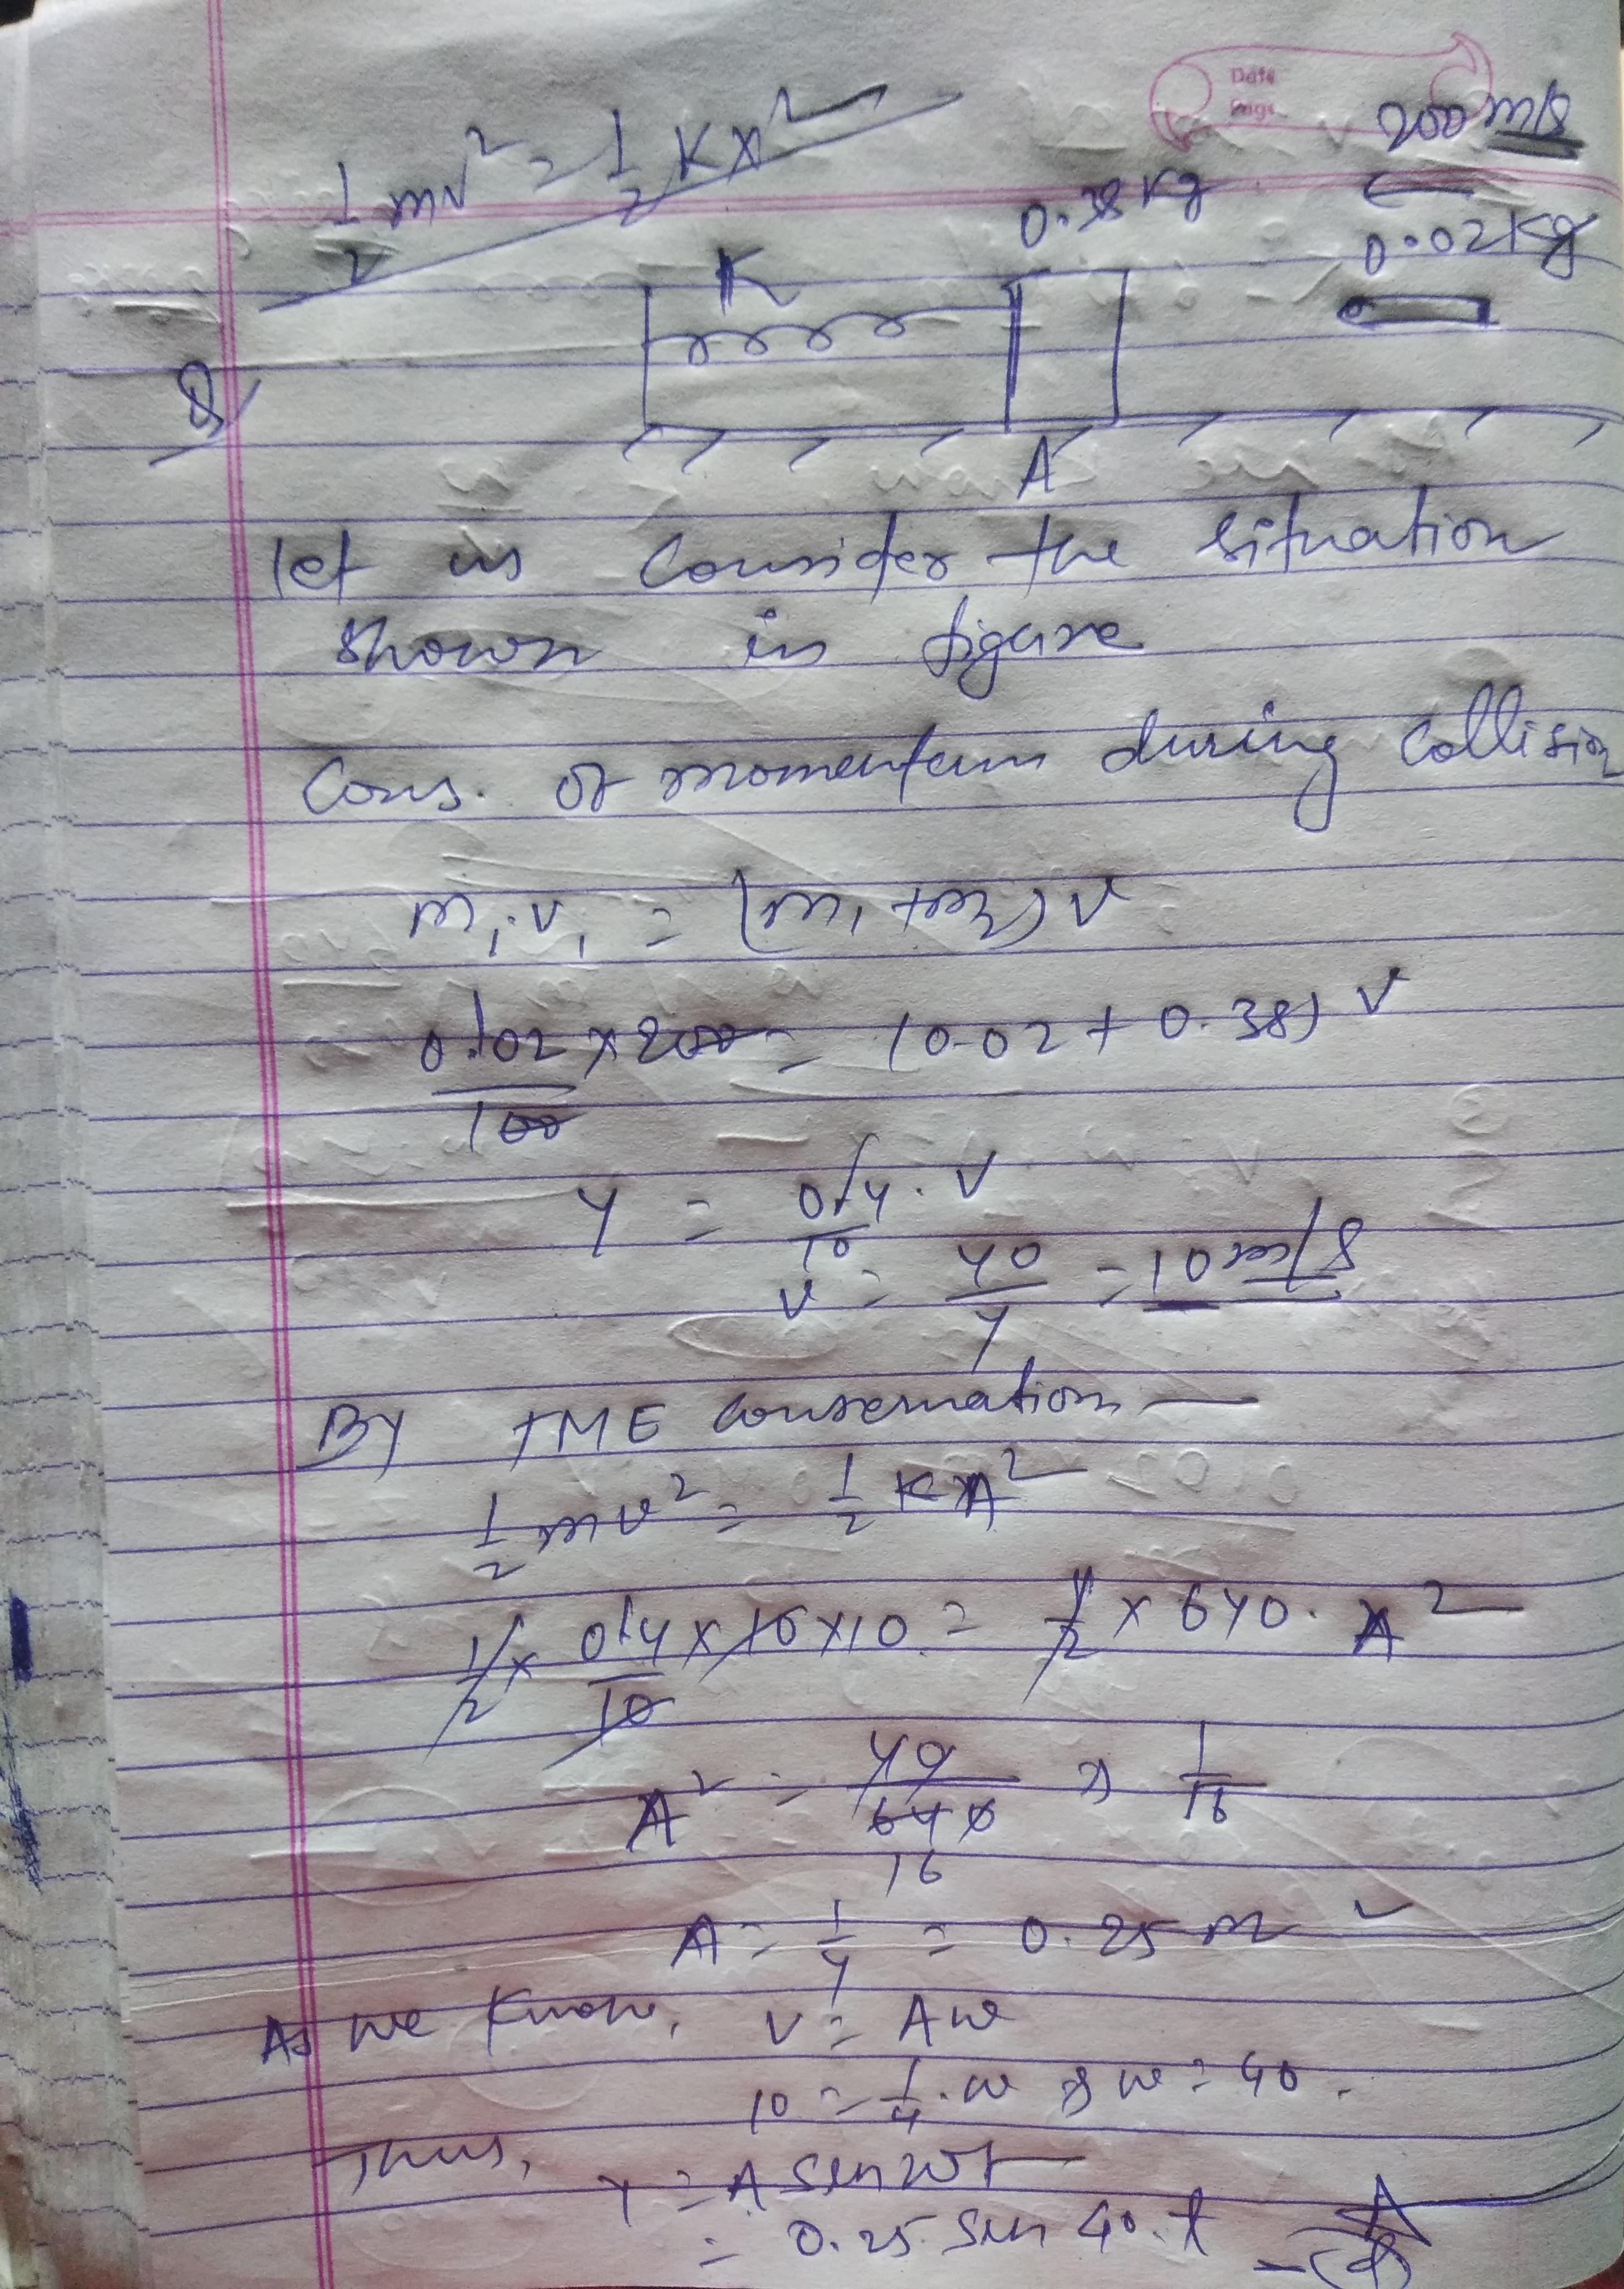 Date
Page
200 m/s
1/2 mv² = 1/2 Kx²
0.38 Kg
0.02 Kg
K
Q
A
let us Consider the situation
shown in figure
Cons. of momentum during collision
m₁.v₁ = (m₁ + m₂) v
0.02/100 × 200 = (0.02 + 0.38) v
4 = 0.4/10 . v
v = 40/4 = 10 m/s
By TME conservation —
1/2 mv² = 1/2 KA²
1/2 × 0.4/10 × 10 × 10 = 1/2 × 640 . A²
A² = 40/640 16 1/16
A = 1/4 = 0.25 m
As we know, v = Aw
10 = 1/4 . w w = 40 .
Thus, Y = A sin wt
= 0.25 sin 40.t